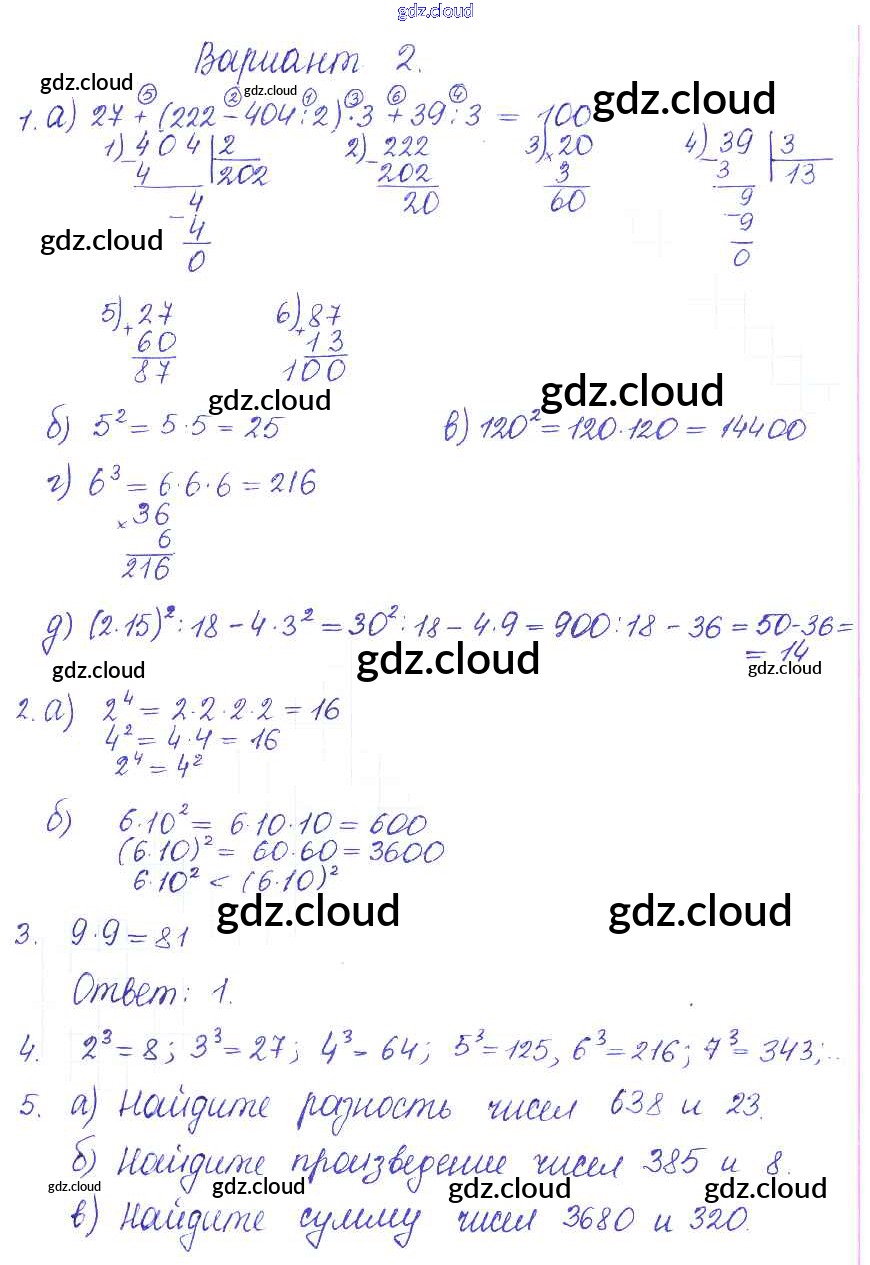 gdz.cloud
Вариант 2.
gdz.cloud gdz.cloud gdz.cloud
⑤ ② ① ③ ⑥ ④
1. а) 27 + (222 - 404 : 2) · 3 + 39 : 3 = 100
1) 404 | 2 2) 222 3) 20 4) 39 | 3
- 4 202 - 202 × 3 - 3 13
4 20 60 9
- 4 - 9
gdz.cloud 0 0
5) 27 6) 87
+ 60 + 13
87 100
gdz.cloud gdz.cloud
б) 5² = 5 · 5 = 25 в) 120² = 120 · 120 = 14400
г) 6³ = 6 · 6 · 6 = 216
× 36
6
216
д) (2·15)² : 18 - 4 · 3² = 30² : 18 - 4 · 9 = 900 : 18 - 36 = 50 - 36 =
= 14
gdz.cloud gdz.cloud gdz.cloud
2. а) 2⁴ = 2 · 2 · 2 · 2 = 16
4² = 4 · 4 = 16
2⁴ = 4²
б) 6·10² = 6·10·10 = 600
(6·10)² = 60·60 = 3600
6·10² < (6·10)²
gdz.cloud gdz.cloud
3. 9·9 = 81
Ответ: 1.
4. 2³ = 8; 3³ = 27; 4³ - 64; 5³ = 125, 6³ = 216; 7³ = 343;..
5. а) Найдите разность чисел 638 и 23.
б) Найдите произведение чисел 385 и 8.
gdz.cloud gdz.cloud gdz.cloud gdz.cloud
в) Найдите сумму чисел 3680 и 320.